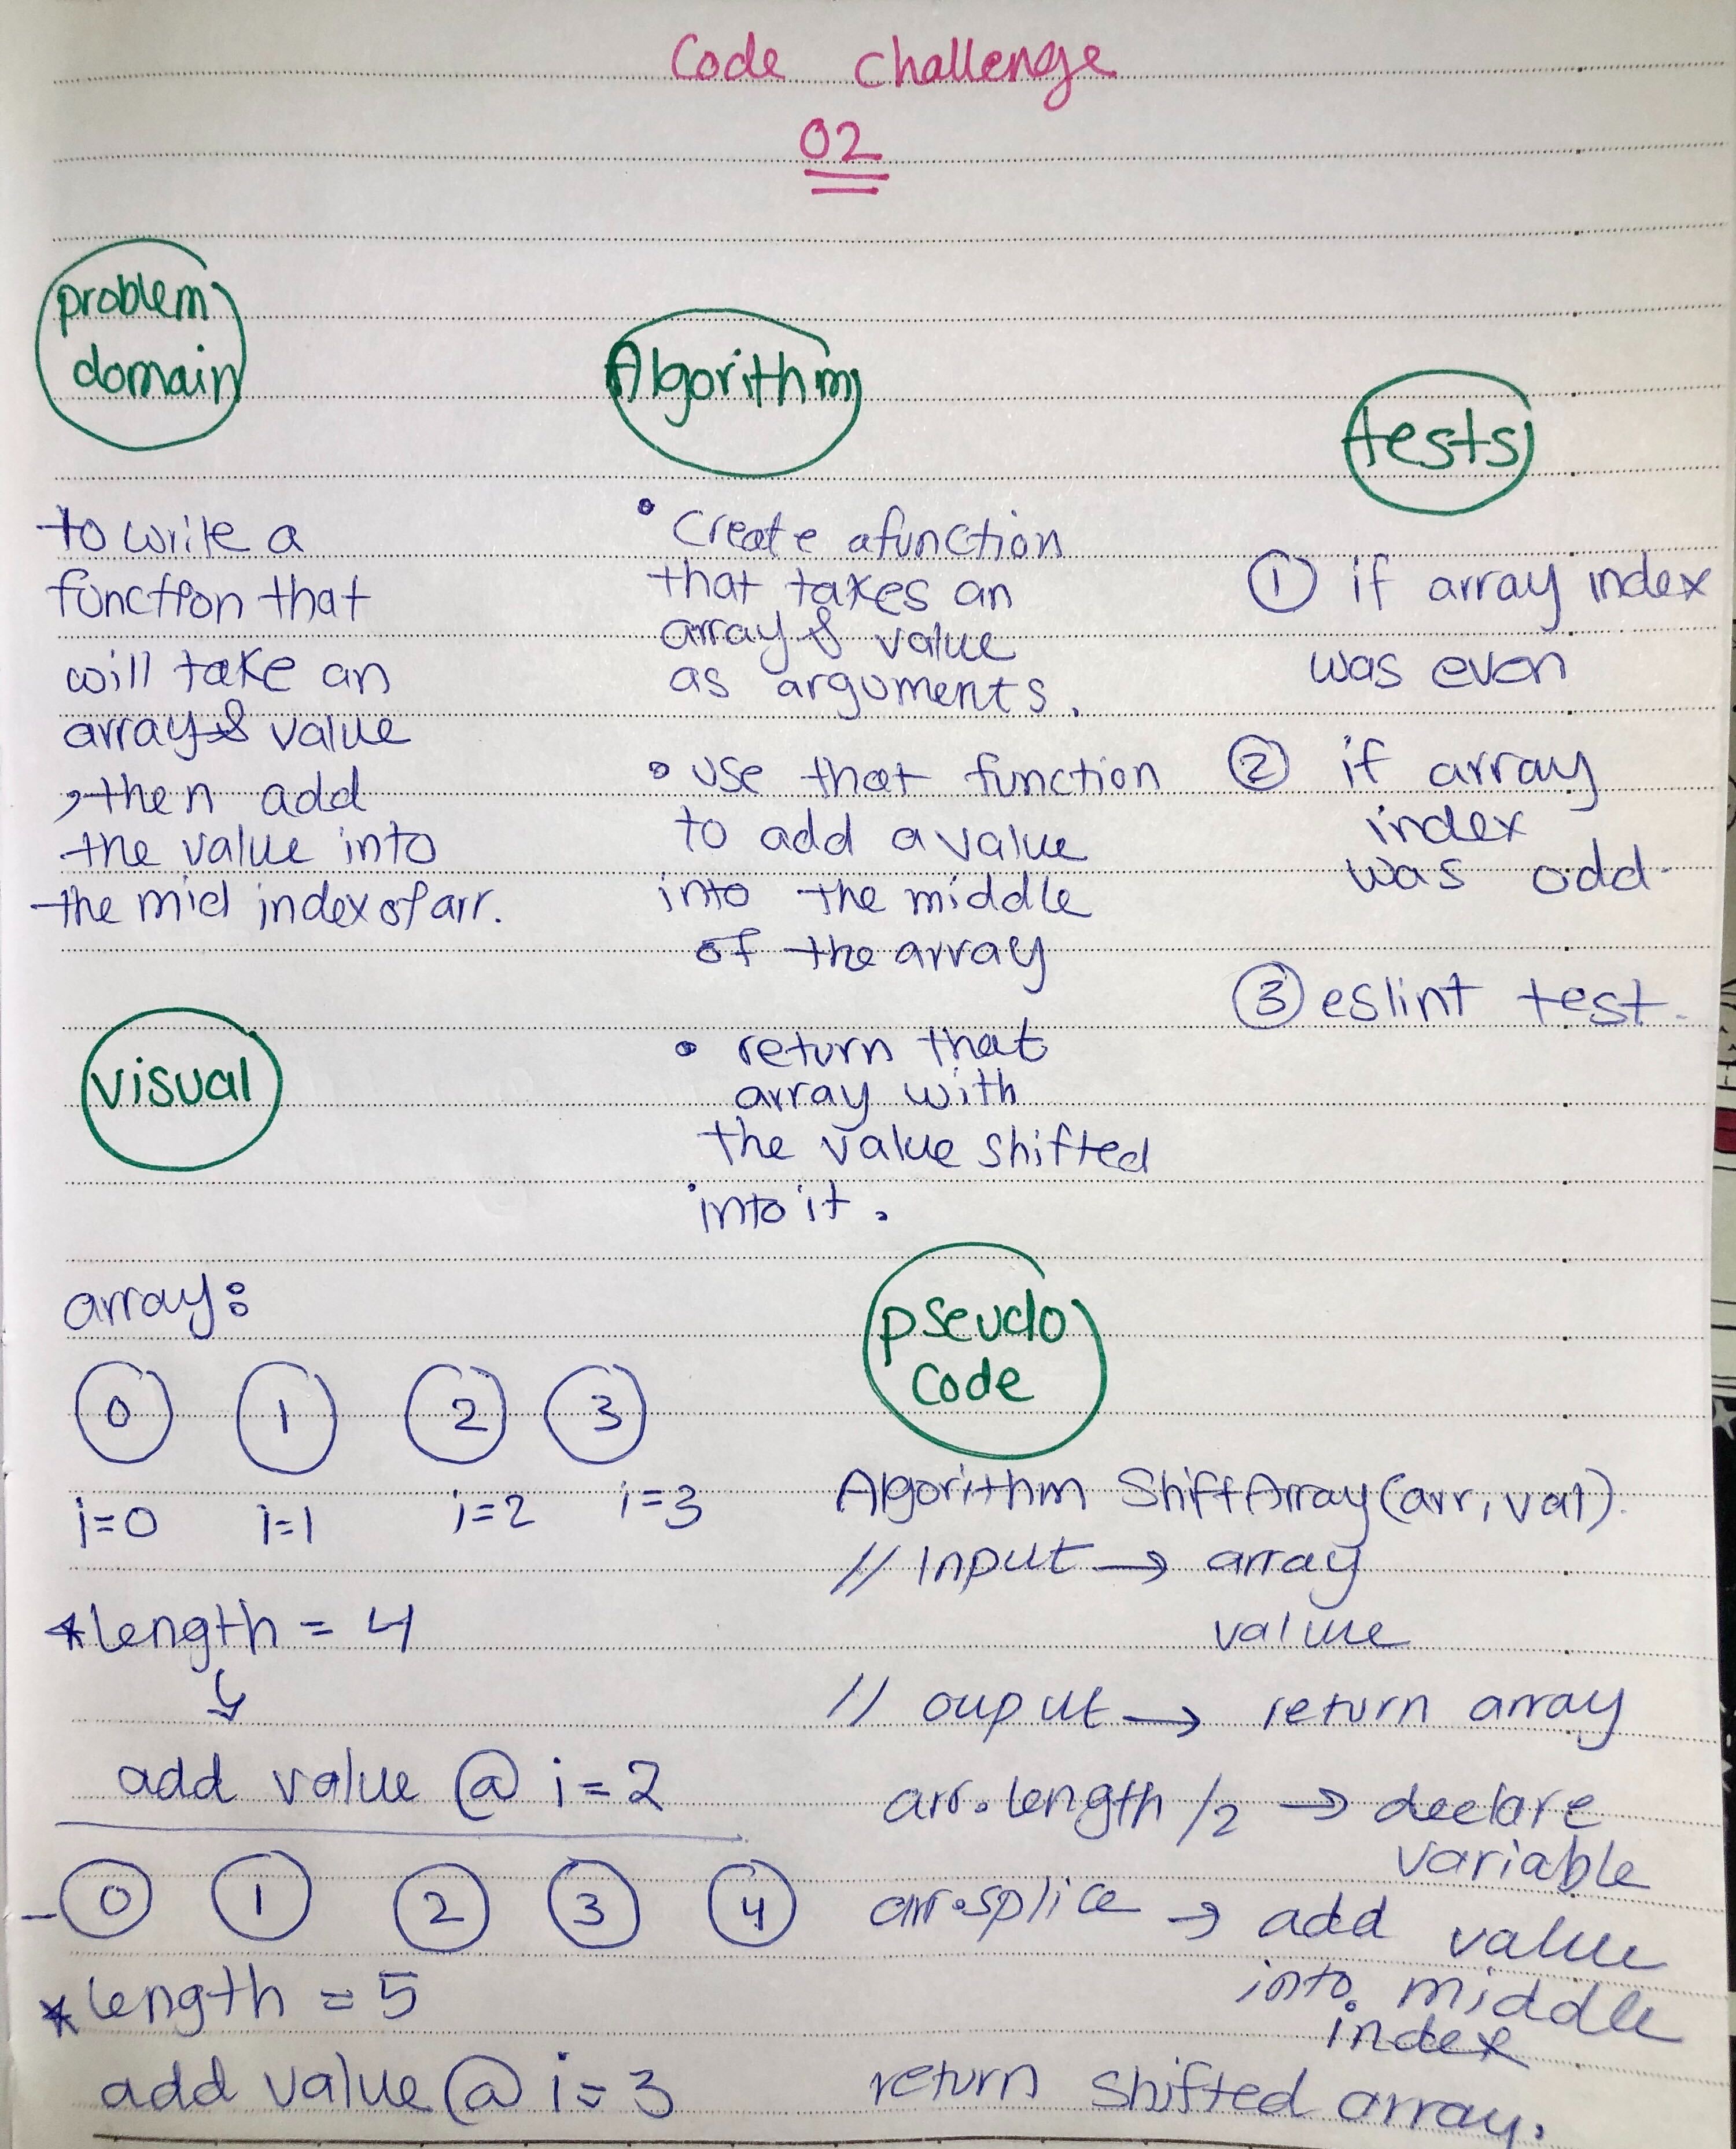 Code challenge
02
problem
domain
to write a
function that
will take an
array & value
, then add
the value into
the mid index of arr.
Algorithm
• Create a function
that takes an
array & value
as arguments.
• use that function
to add a value
into the middle
of the array
• return that
array with
the value shifted
into it.
tests
① if array index
was even
② if array
index
was odd
③ eslint test.
visual
array:
0 1 2 3
i=0 i=1 i=2 i=3
* length = 4
↓
add value @ i=2
- 0 1 2 3 4
* length = 5
add value @ i=3
pseudo
code
Algorithm ShiftArray(arr, val).
// Input → array
value
// ouput → return array
arr.length /2 → declare
variable
arr.splice → add value
into middle
index
return shifted array.